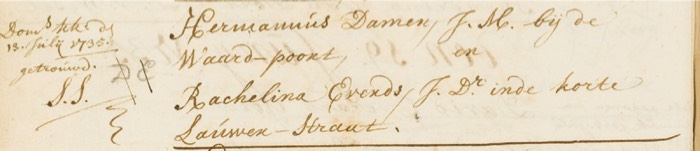 Dom.s kk d
13. Julij 1735.
getrouwd.
S.S.
Hermannús Damen, J.M. bij de
Waard-poort, en
Rachelina Everds, J.Dr. inde korte
Laúwer-Straat.